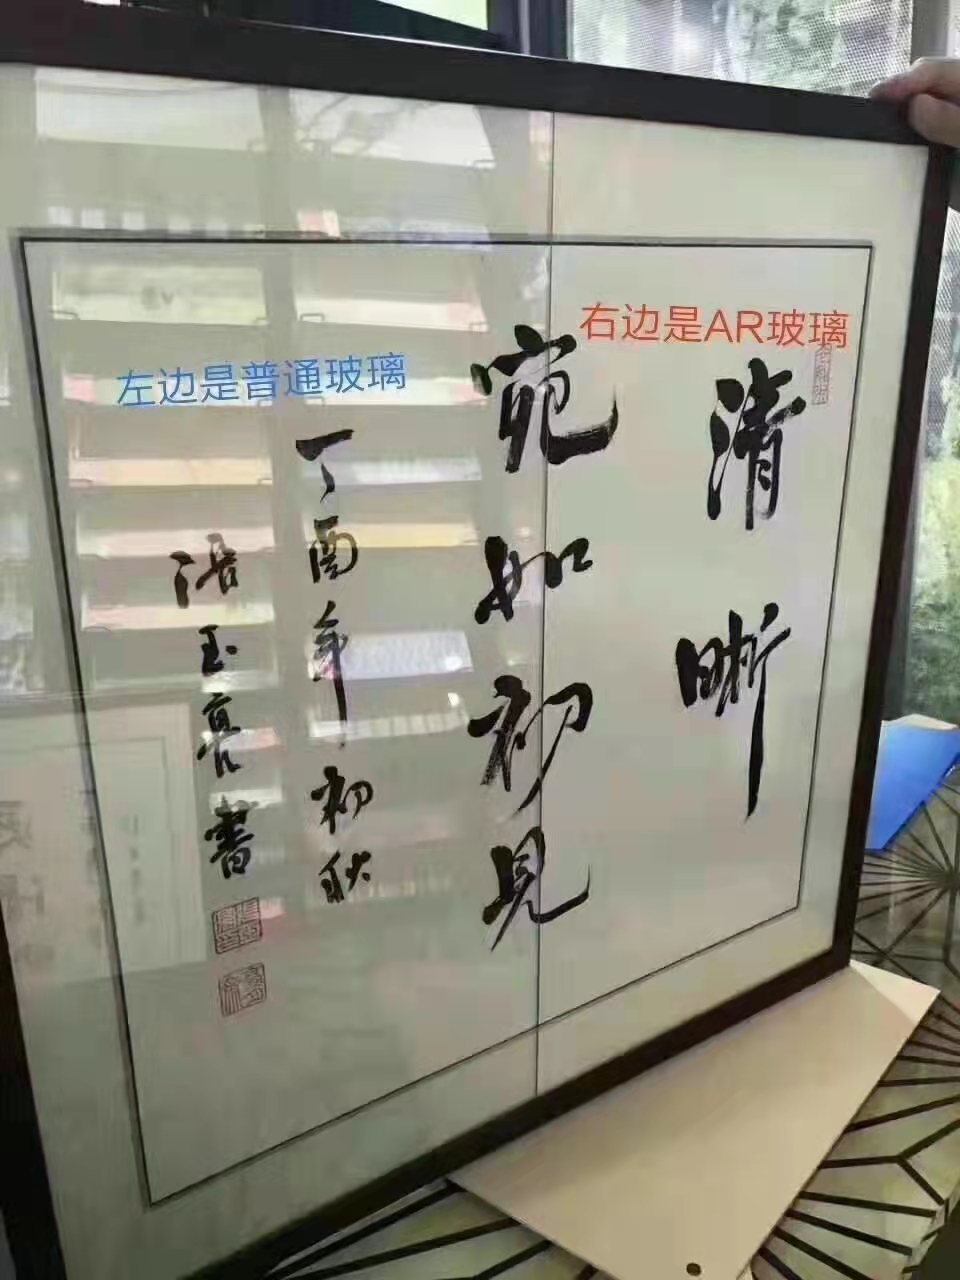 左边是普通玻璃
右边是AR玻璃
清晰
宛如初見
丁酉年初秋
玉亮書